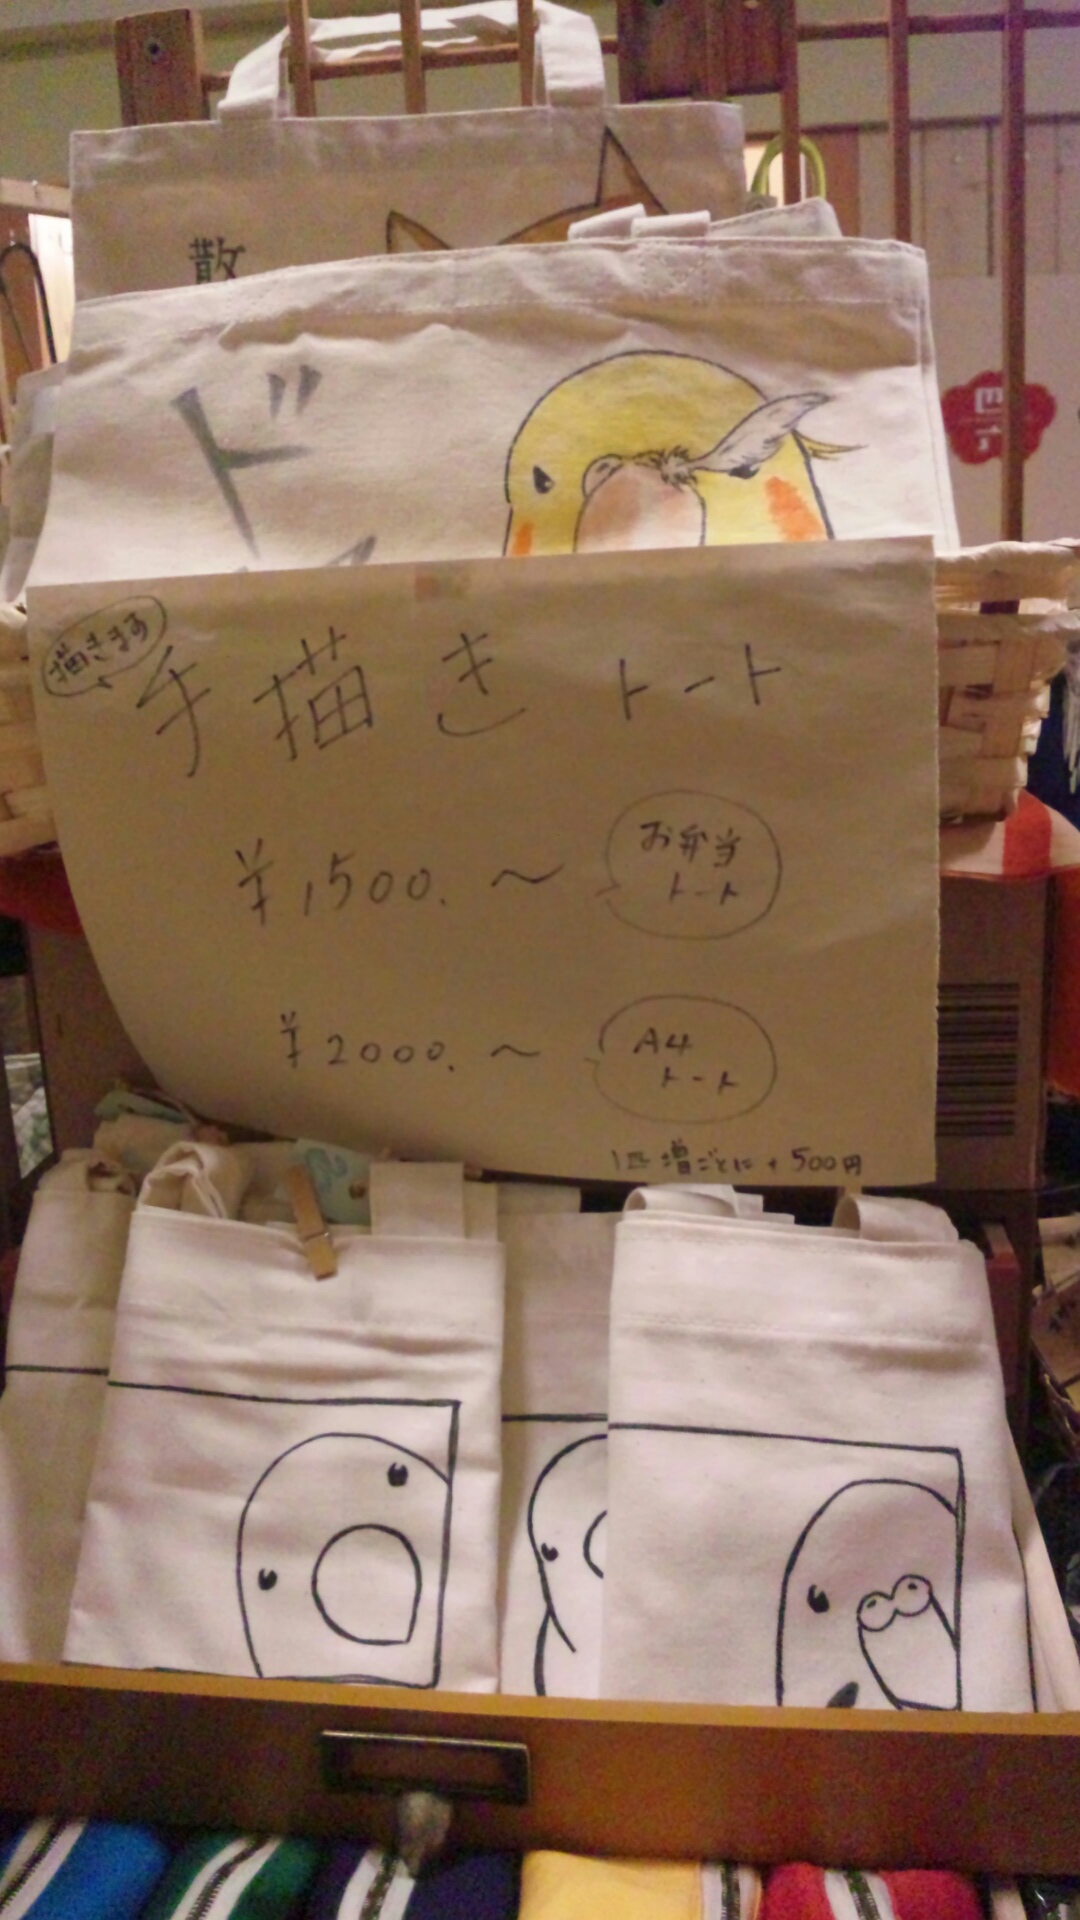 散
ド
描きます
手描きトート
¥1500.～
お弁当
トート
¥2000.～
A4
トート
1匹増ごとに+500円